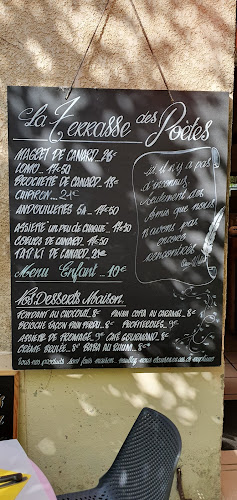 La Terrasse des Poètes
MAGRET DE CANARD.. 26€
LOMO... 17€50
BROCHETTE DE CANARD.. 18€
CHIPIRON.... 21€
ANDOUILLETTES 5A.. 17€50
ASSIETTE UN PEU DE CHAQUE.. 17€50
COEURS DE CANARD.. 17€50
TATAKI DE CANARD.. 21€
Menu Enfant.. 10€
il n'y a pas
d'inconnus
seulement des
Amis que nous
n'avons pas
encore
rencontrés
Nos Desserts Maison
FONDANT AU CHOCOLAT.. 8€ PANNA COTTA AU CARAMEL.. 8€
BRIOCHE FAÇON PAIN PERDU.. 8€ PROFITEROLES.. 9€
ASSIETTE DE FROMAGE.. 9€ CAFÉ GOURMAND.. 8€
CRÈME BRULÉE.. 8€ BABA AU RHUM... 8€
TOUS NOS PRODUITS SONT FAITS MAISON